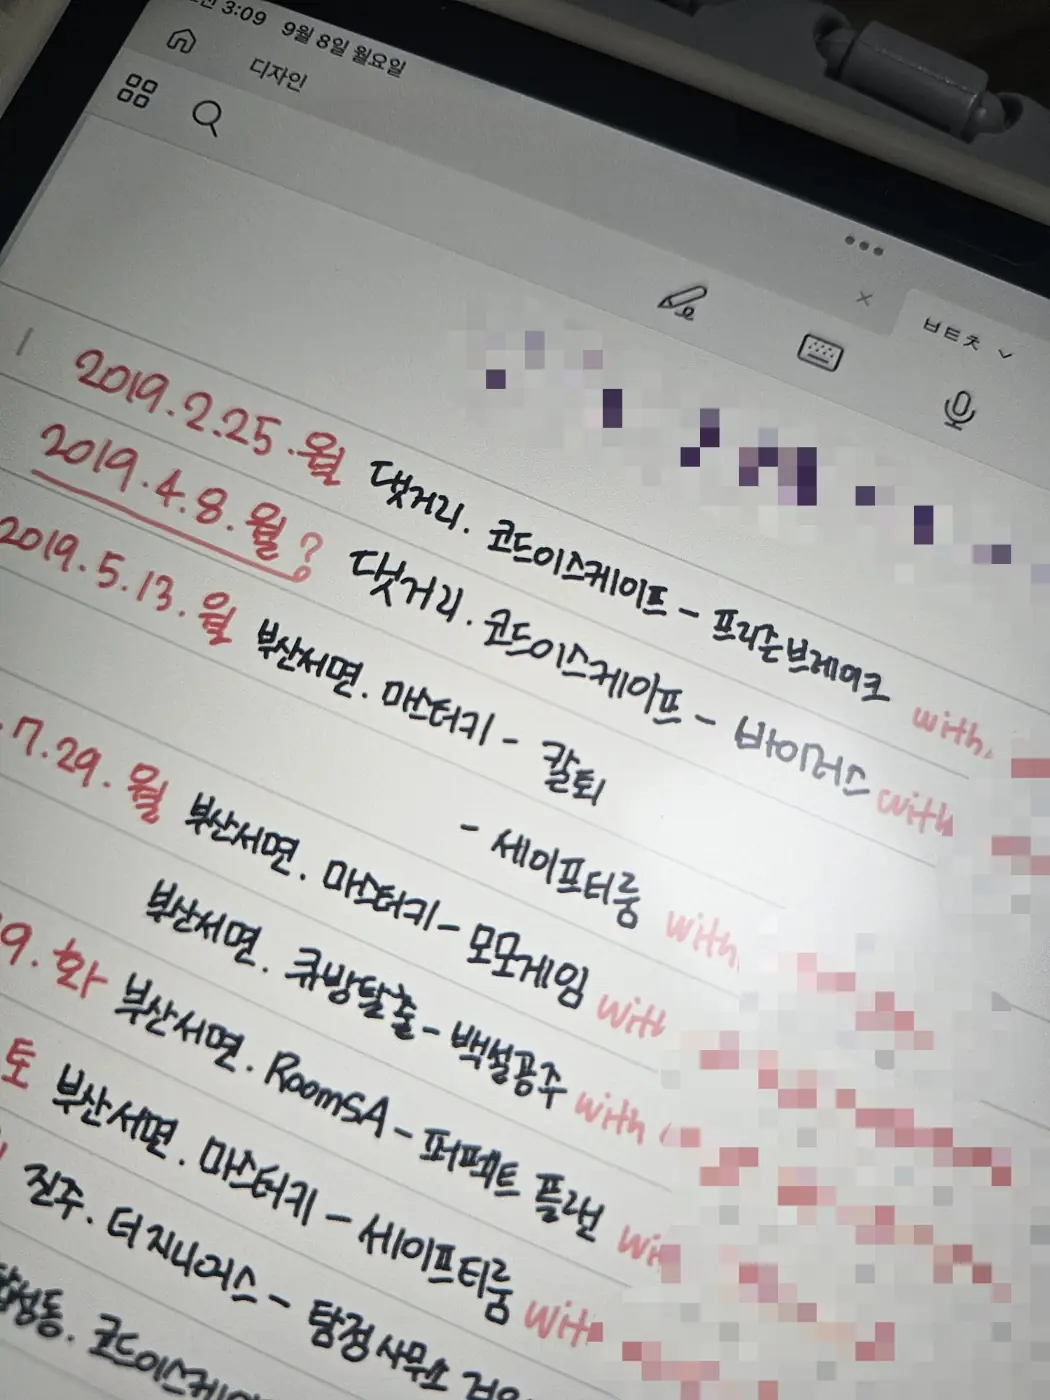 3:09 9월 8일 월요일
디자인
ㅂㅌㅊ
2019.2.25.월 댓거리. 코드이스케이프 - 프리즌브레이크 with.
2019.4.8.월? 댓거리. 코드이스케이프 - 바이러스 with
2019.5.13.월 부산서면. 마스터키 - 칼퇴
- 세이프티룸 with.
.7.29.월 부산서면. 마스터키 - 모모게임 with
부산서면. 큐방탈출 - 백설공주 with
9.화 부산서면. RoomSA - 퍼펙트 플랜 wi
토 부산서면. 마스터키 - 세이프티룸 with
진주. 더지니어스 - 탐정사무소
합성동. 코드이스케이